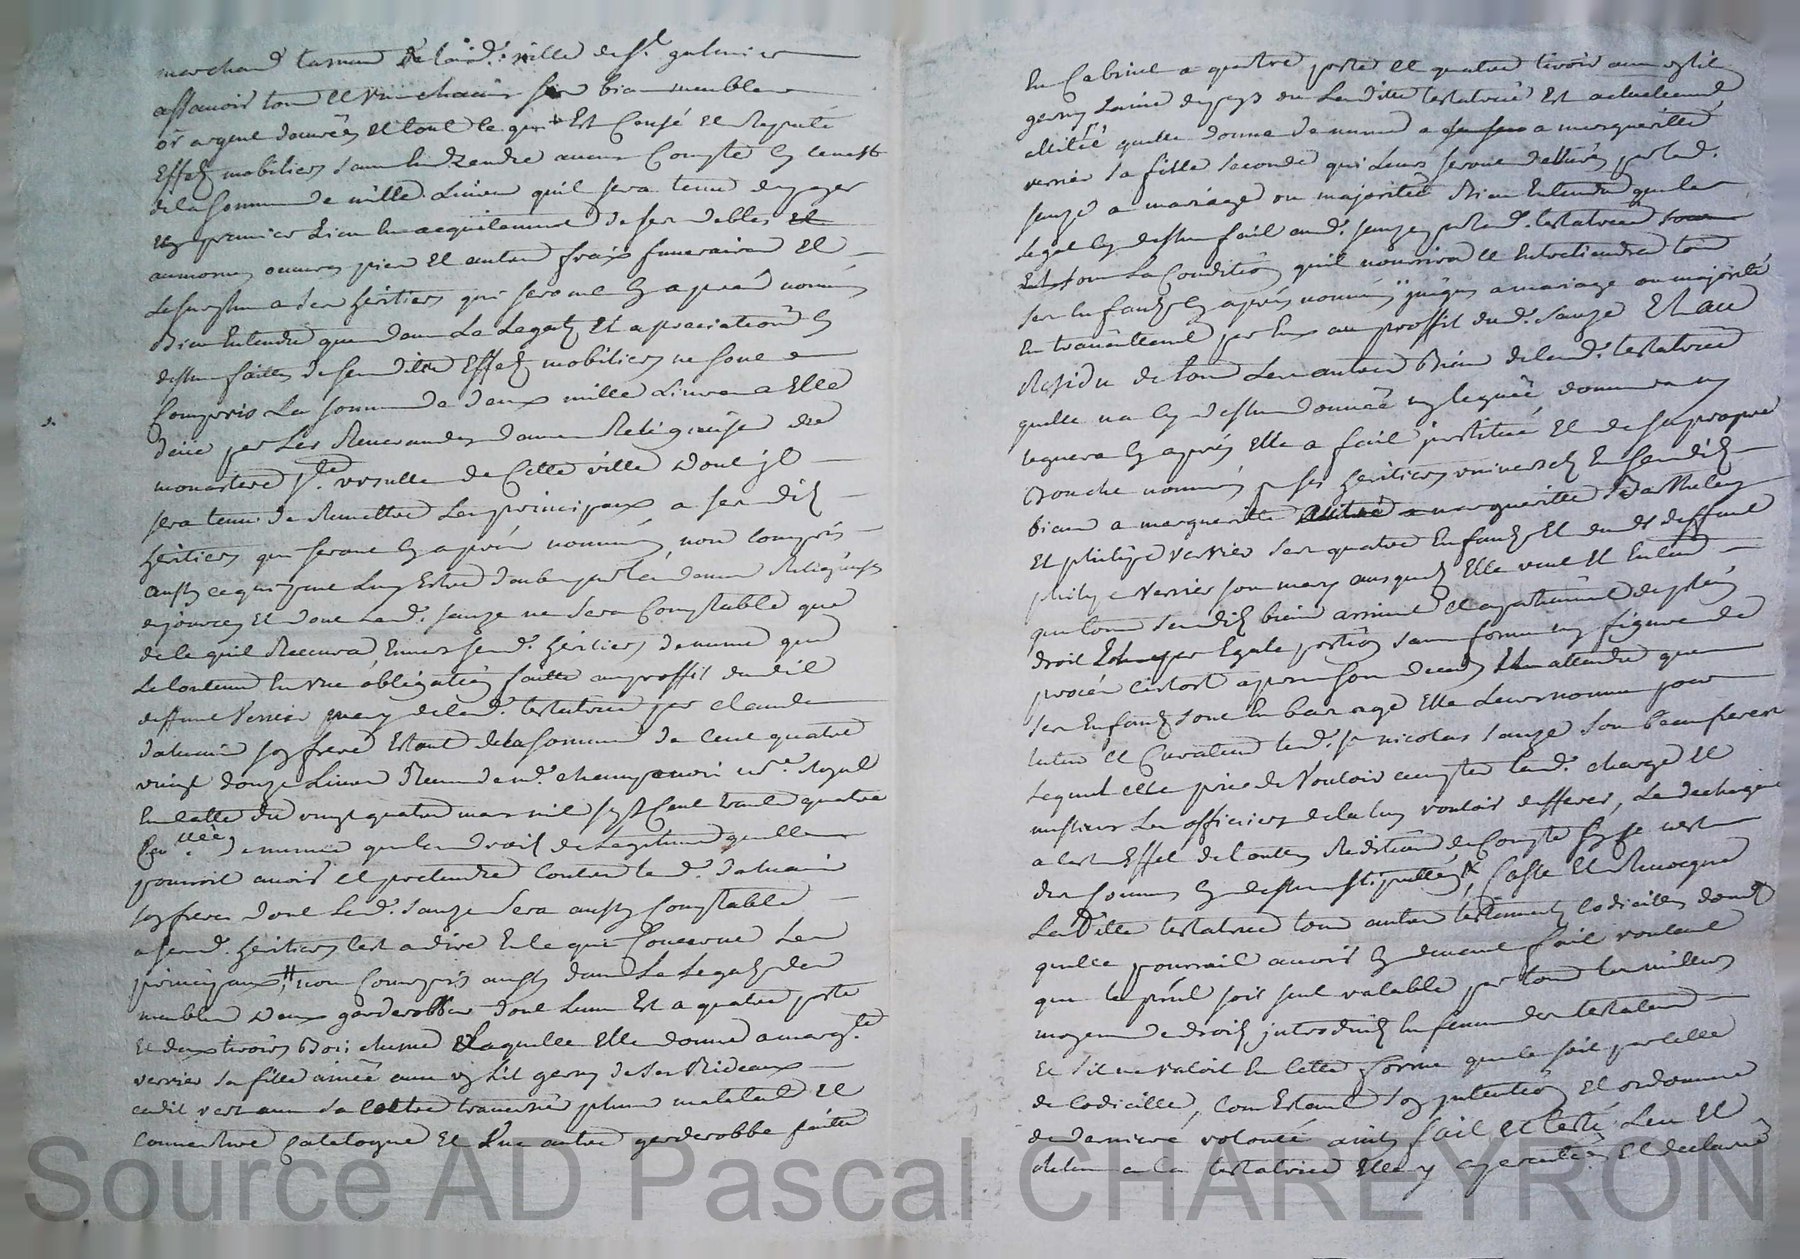 marchand taneur de lad. ville de St. galmier
assauoir tous et vn chacuns ses biens meubles
or argent danrées et tout ce qui Est Censé et Reputé
Effets mobiliers sans En Rendre aucun Compte Cy ce nest
de la somme de mille Liures quil sera tenu de payer
en premier Lieu En acquitement de ses debtes et
aumosnes oeuures pies et autres fraix funeraires et
le surplus a ses heritiers qui seront Cy apres nommés
Bien Entendu que dans Le Legat Et apreciation Cy
dessus faitte de sesdits Effets mobiliers ne sont
Compris La somme de deux mille Liures a Elle
deue par Les Reuerandes dames Religieuses du
monastere Ste. vrsulle de Cette ville dont jl
sera tenu de Remettre Les principaux a sesdits
heritiers qui seront Cy apres nommés, non Compris
aussy ce qui peut Luy Estre deub par les dames Religieuses
et dont Led. sauze ne sera Comptable que
de ce quil Receura Enuers sesd. heritiers de meme que
Le Contenu En vne obligation faitte au proffit dudit
deffunt Verrier mary de lad. testatrice par claude
dalmais son frere Estant de la somme de Cent quatre
vingt douze Liures Receue me. champanoi nore. Royal
En datte du vingt quatre mars mil sept Cent trente quatre
de meme que les droits de Legitime quelle
pourroit auoir et pretendre Contre led. dalmais
son frere dont Led. sauze sera aussy Comptable
a sesd. heritiers Cest a dire En ce qui Concerne Les
principaux, non Compris aussy dans Le Legat des
meubles deux garderobbes dont Lune Est a quatre portes
Et deux tiroirs Bois chesne Laquelle Elle donne a margte.
verrier sa fille ainée auec vn Lit garny de ses Rideaux
cadit vert auec sa Coitre trauersier plume matelat et
Couuerture Catalogne Et Vne autre garderobbe faitte
En Cabinet a quatre portes et quatre tiroirs auec vn lit
garny Laine du pays ou Laditte testatrice Est actuellement
allitée quelle donne de meme a margueritte
verrier sa fille seconde qui Leurs seront deliurés par led.
sauze a mariage ou majorité Bien Entendu que les
Legat Cy dessus fait aud. sauze par lad. testatrice
Est sous La Condition quil nourrira et Entretiendra tous
ses Enfants Cy apres nommés jusques a mariage ou majorité
En trauaillant par Eux au proffit dud. sauze Et au
Residu de tous Les autres Biens de lad. testatrice
quelle na Cy dessus donnée ny leguée donnera ny
leguera Cy apres Elle a fait jnstitué Et de sa propre
Bouche nommé ses heritiers vniuersels En sesdits
biens a margueritte autre margueritte Barthelemy
Et philipe verrier ses quatre Enfants Et dudt deffunt
philipe Verrier son mary ausquels Elle veut Et Entend
que tous sesdits biens arriuent Et apartiennent de plein
droit par Egale portion sans forme ny figure de
proces Cistost apres son deces Et attendu que
ses Enfants sont En bas age Elle Leurs nomme pour
tuteur Et Curateur led. sr. nicolas sauze son beaufrere
Lequel elle prie de Vouloir accepter lad. charge Et
messieurs Les officiers de la luy vouloir defferer, Le dechargeant
a Cest Effet de touttes Reditions de Compte sy ce nest
des sommes Cy dessus stipullées, Casse Et Reuoque
Laditte testatrice tous autres testaments Codicilles donats
quelle pourroit auoir Cy deuant fait voulant
que le pnt. soit seul valable par tous les meilleurs
moyens de droits jntroduits En faueur des testaments
Et sil ne valoit En Cette forme quil le soit par celle
de Codicille, Com Estant son jntention Et ordonnance
de derniere volonté ainsy fait et testé Leu Et
Releu a la testatrice Elle y a persisté Et declaré
Source AD Pascal CHAREYRON